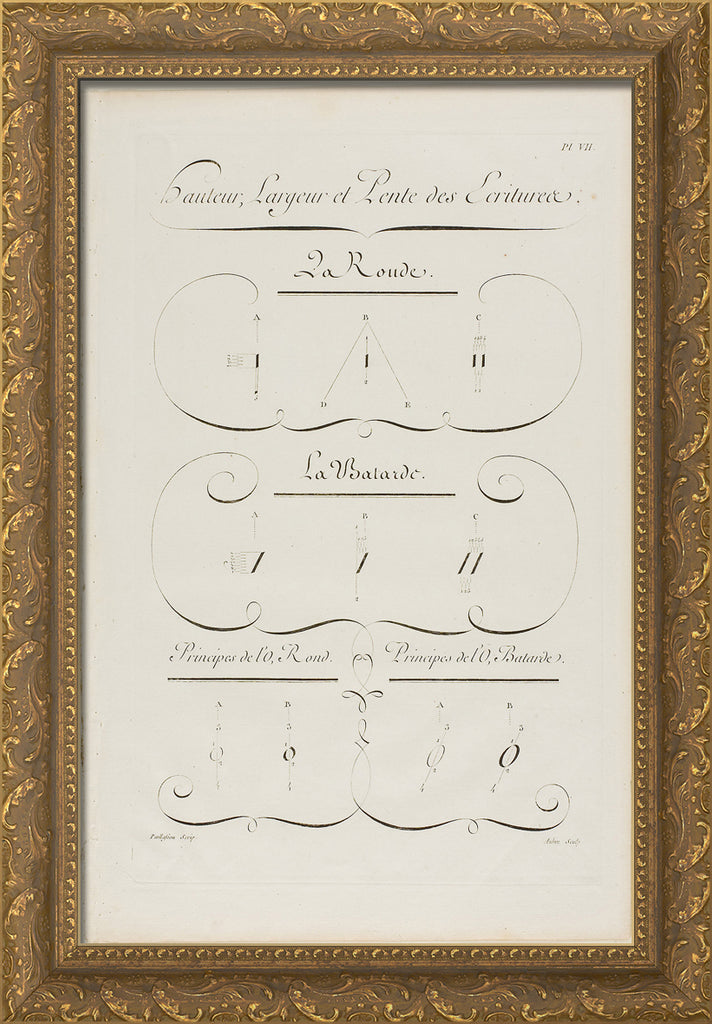 Pl. VII.
Hauteur, Largeur et Pente des Ecritures.
La Ronde.
A B C
D E
La Batarde.
A B C
Principes de l'O, Rond. Principes de l'O, Batarde.
A B A B
3 3 3 3
1 1 1 1
2 2 2 2
4 4 4 4
Paillasson Scrip Aubin Sculp